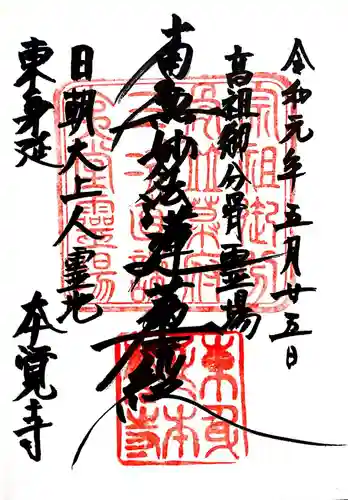 令和元年五月廿五日
高祖御分骨霊場
南無妙法蓮華経
日朝大上人霊地
東身延 本覚寺